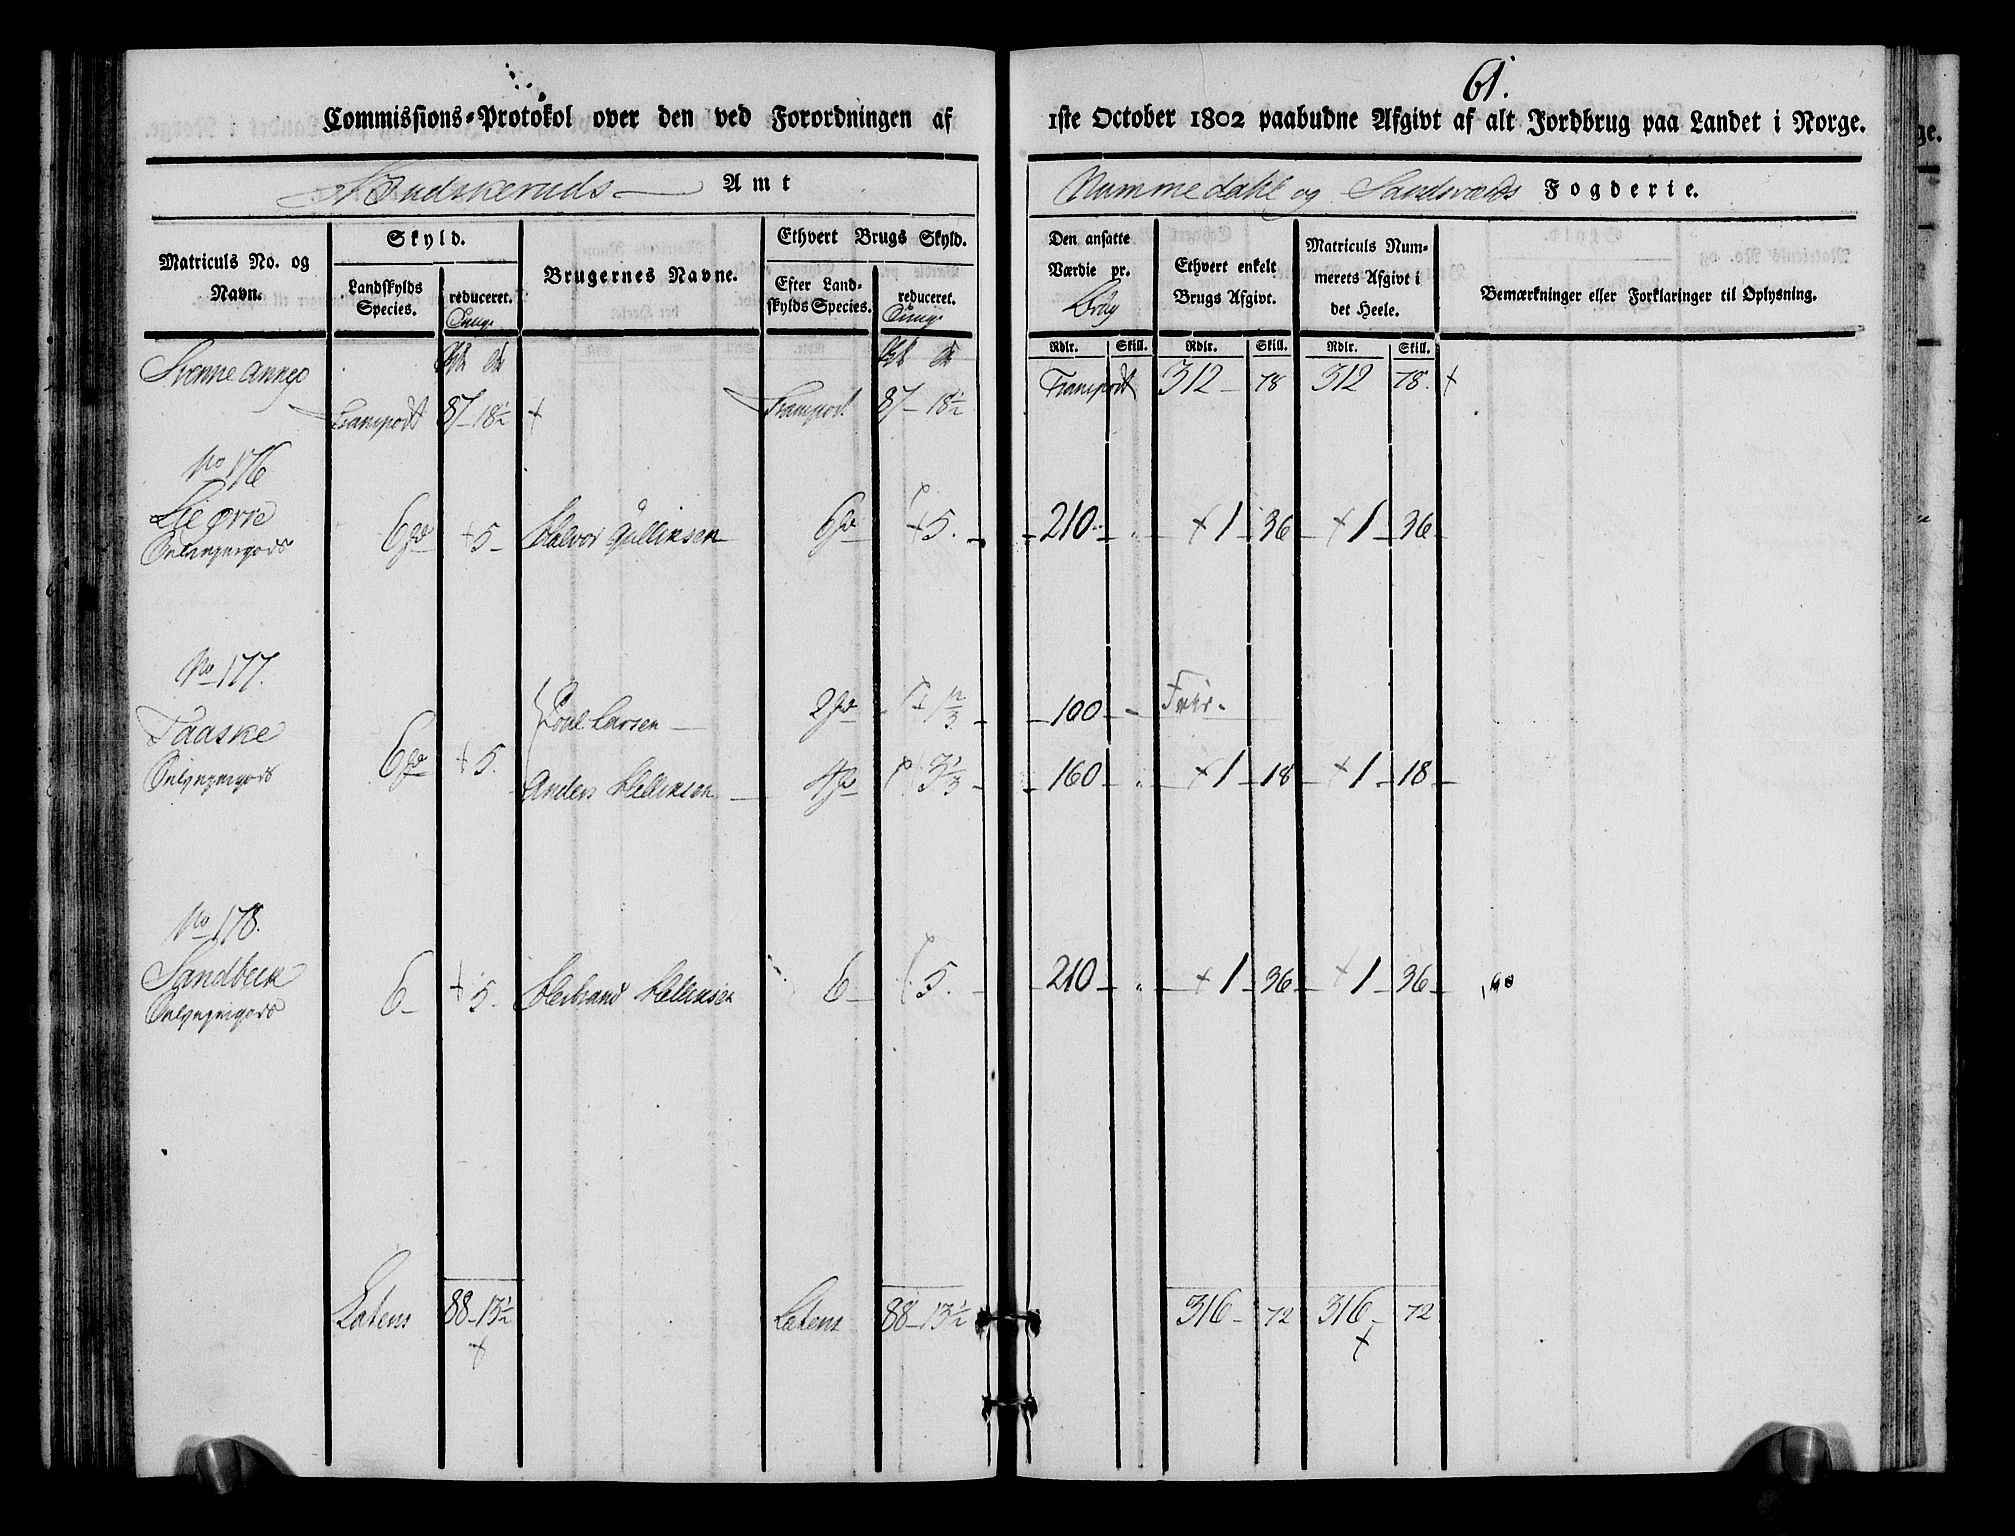 61.
Commissions-Protokol over den ved Forordningen af 1ste October 1802 paabudne Afgivt af alt Jordbrug paa Landet i Norge.
Buskeruds Amt
Nummedahl og Sandsværds Fogderie.
Matriculs No. og Navn.
Skyld.
Landskylds Species.
reduceret.
Brugernes Navne.
Ethvert Brugs Skyld.
Efter Landskylds Species.
reduceret.
Den ansatte Værdie pr.
Ethvert enkelt Brugs Afgivt.
Matriculs Nummerets Afgivt i det Heele.
Bemærkninger eller Forklaringer til Oplysning.
Rdlr. Skill. Rdlr. Skill. Rdlr. Skill.
Svenne Annex
Transport 87 - 18½ + Transport 87 - 18½ Transport 312 - 78 312 78. +
No 176
Lie øvre 6 + 5 - Halvor Gulliksen 6 + 5. 210 - + 1 - 36 - + 1 - 36 -
Selveyergods
No 177.
Taaske 6 + 5. Poul Larsen 2 1⅔ 100 - Frie.
Selveyergods Anders Helliksen 4 3⅓ 160 - + 1 - 18 - + 1 - 18 -
No 178.
Sandbek 6 - + 5. Herbrand Hellicksen 6 - 5. 210 - + 1 - 36 - + 1 - 36 -
Selveyergods
Latens 88 - 13½ Latens 88 - 13½ 316 - 72 316 - 72
+ +